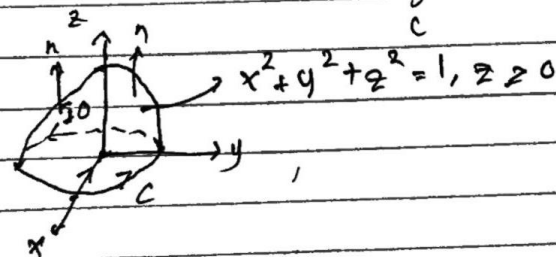 C
z
n
n
x² + y² + z² = 1, z ≥ 0
y
C
x